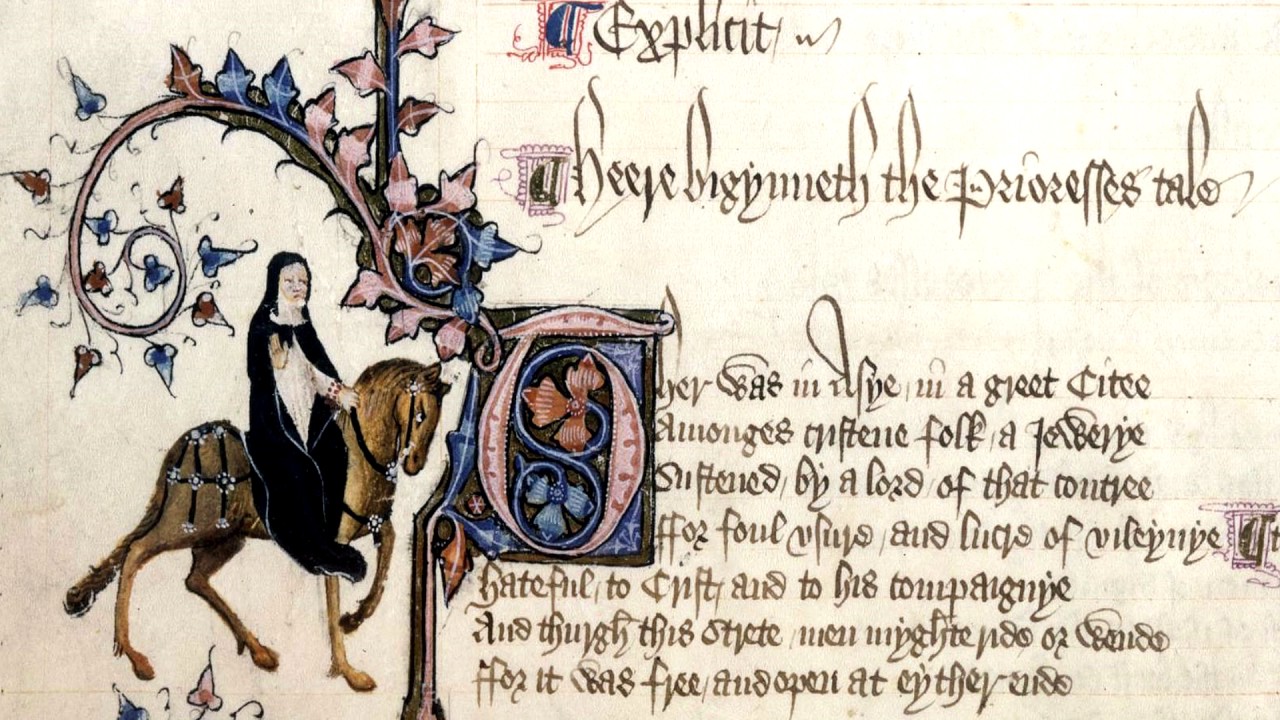 ¶ Explicit
¶ Heere bigynneth the Prioresses tale
Ther was in Asye / in a greet Citee
Amonges cristene folk / a Jewerye
Sustened / by a lord / of that contree
ffor foul vsure / and lucre of vileynye ¶
hateful / to Crist / and to his compaignye
And thurgh this Strete / men myghte ride or wende
ffor it was free / and open at eyther ende